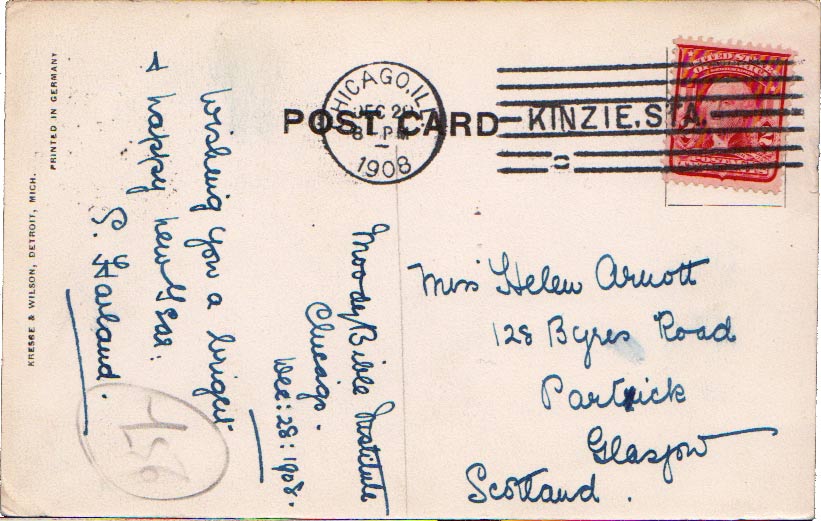 POST CARD
CHICAGO, ILL.
DEC 29
8 PM
1908
KINZIE. STA.
Moody Bible Institute
Chicago.
Dec: 28: 1908.
Wishing you a bright
& happy New Year:
S. Garland.
Miss Helen Arnott
128 Byres Road
Partick
Glasgow
Scotland.
PRINTED IN GERMANY
KRESGE & WILSON, DETROIT, MICH.